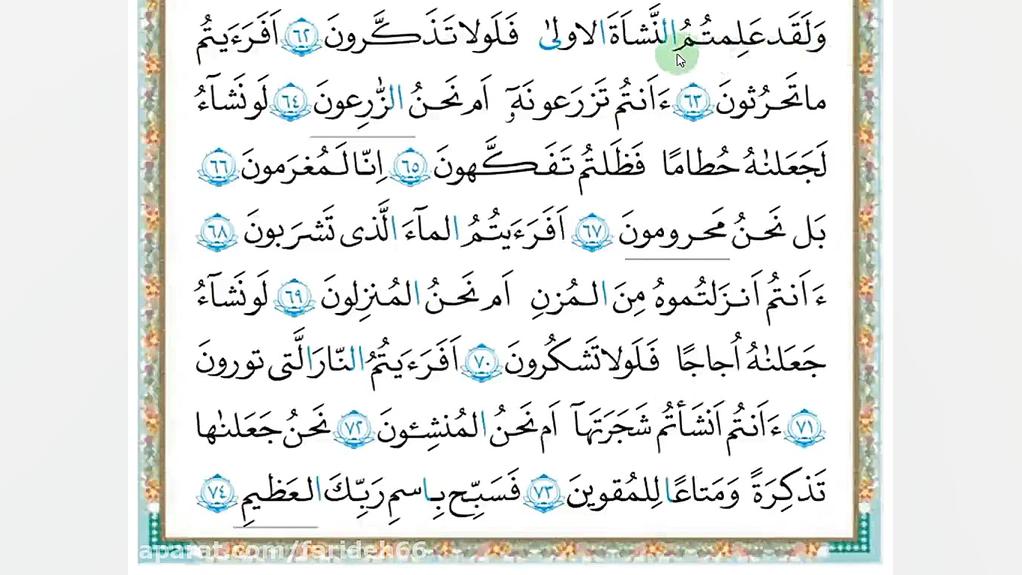 وَلَقَد عَلِمتُمُ النَّشاَةَ الاولىٰ فَلَولا تَذَكَّرونَ ﴿٦٢﴾ اَفَرَءَيتُم
ما تَحرُثونَ ﴿٦٣﴾ ءَاَنتُم تَزرَعونَهٗٓ اَم نَحنُ الزّٰرِعونَ ﴿٦٤﴾ لَو نَشآءُ
لَجَعَلنٰهُ حُطامًا فَظَلتُم تَفَكَّهونَ ﴿٦٥﴾ اِنّا لَمُغرَمونَ ﴿٦٦﴾
بَل نَحنُ مَحرومونَ ﴿٦٧﴾ اَفَرَءَيتُمُ المآءَ الَّذى تَشرَبونَ ﴿٦٨﴾
ءَاَنتُم اَنزَلتُموهُ مِنَ المُزنِ اَم نَحنُ المُنزِلونَ ﴿٦٩﴾ لَو نَشآءُ
جَعَلنٰهُ اُجاجًا فَلَولا تَشكُرونَ ﴿٧٠﴾ اَفَرَءَيتُمُ النّارَ الَّتى تورونَ
﴿٧١﴾ ءَاَنتُم اَنشَأتُم شَجَرَتَهآ اَم نَحنُ المُنشِـٔونَ ﴿٧٢﴾ نَحنُ جَعَلنٰها
تَذكِرَةً وَمَتاعًا لِلمُقوينَ ﴿٧٣﴾ فَسَبِّح بِاسمِ رَبِّكَ العَظيمِ ﴿٧٤﴾
aparat.com/farideh66